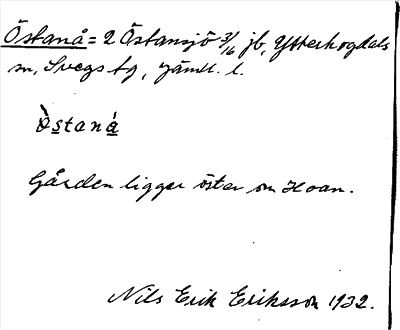 Östanå = 2 Östansjö 3/16 jb, Ytterhogdals
sn, Svegs tg, Jämtl. l.
Òstaná
Gården ligger öster om Hoan.
Nils Erik Eriksson 1932.